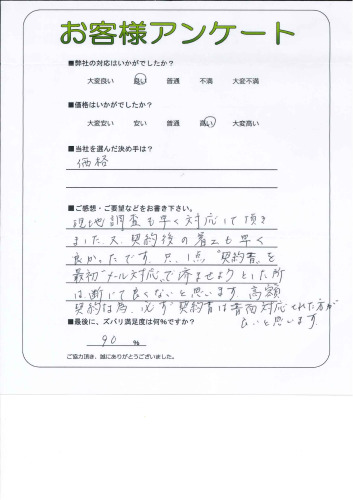 お客様アンケート
■弊社の対応はいかがでしたか?
大変良い 良い 普通 不満 大変不満
■価格はいかがでしたか?
大変安い 安い 普通 高い 大変高い
■当社を選んだ決め手は?
価格
■ご感想・ご要望などをお書き下さい。
現地調査も早く対応して頂き
ました。又、契約後の着工も早く
良かったです。只、1点"契約書"を
最初"メール対応"で済ませようとした所
は断じて良くないと思います。高額
契約な為、必ず"契約書は書面対応された方が
良いと思います。
■最後に、ズバリ満足度は何%ですか?
90 %
ご協力頂き、誠にありがとうございました。